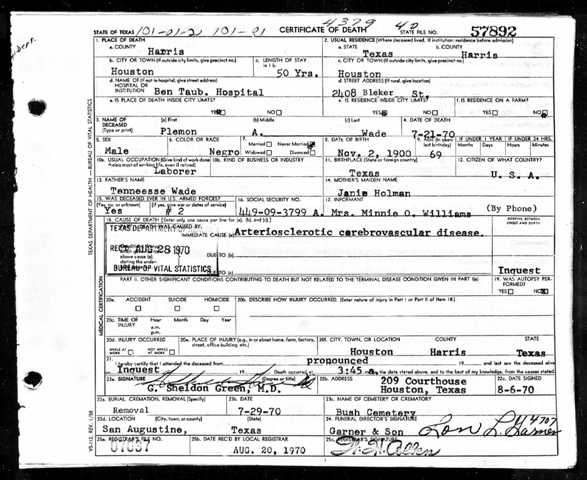 4379 42
STATE OF TEXAS 101-21-2 101-21 CERTIFICATE OF DEATH STATE FILE NO. 57892
1. PLACE OF DEATH 2. USUAL RESIDENCE (Where deceased lived. If institution: residence before admission)
a. COUNTY Harris a. STATE Texas b. COUNTY Harris
b. CITY OR TOWN (If outside city limits, give precinct no.) c. LENGTH OF STAY in 1 b. c. CITY OR TOWN (If outside city limits, give precinct no.)
Houston 50 Yrs. Houston
d. NAME OF (If not in hospital, give street address) HOSPITAL OR INSTITUTION d. STREET ADDRESS (If rural, give location)
Ben Taub. Hospital 2408 Bleker St.
e. IS PLACE OF DEATH INSIDE CITY LIMITS? e. IS RESIDENCE INSIDE CITY LIMITS? f. IS RESIDENCE ON A FARM?
YES NO YES NO YES NO
3. NAME OF DECEASED (Type or print) (a) First (b) Middle (c) Last 4. DATE OF DEATH
Plemon A. Wade 7-21-70
5. SEX 6. COLOR OR RACE 7. Married Never Married Widowed Divorced 8. DATE OF BIRTH 9. AGE (In years last birthday) IF UNDER 1 YEAR IF UNDER 24 HRS.
Months Days Hours Min.
Male Negro Nov. 2, 1900 69
10a. USUAL OCCUPATION (Give kind of work done during most of working life, even if retired) 10b. KIND OF BUSINESS OR INDUSTRY 11. BIRTHPLACE (State or foreign country) 12. CITIZEN OF WHAT COUNTRY?
Laborer Texas U. S. A.
13. FATHER'S NAME 14. MOTHER'S MAIDEN NAME
Tennessse Wade Janie Holman
15. WAS DECEASED EVER IN U.S. ARMED FORCES? 16. SOCIAL SECURITY NO. 17. INFORMANT
(Yes, no, or unknown) (If yes, give war or dates of service) (By Phone)
Yes # 2 449-09-3799 A. Mrs. Minnie O. Williams
18. CAUSE OF DEATH (Enter only one cause per line for (a), (b), and (c).) INTERVAL BETWEEN ONSET AND DEATH
DEATH WAS CAUSED BY:
IMMEDIATE CAUSE (a) Arteriosclerotic cerebrovascular disease.
REC'D AUG 28 1970 DUE TO (b)
above cause (a) stating the under-
BUREAU OF VITAL STATISTICS DUE TO (c) Inquest
PART II. OTHER SIGNIFICANT CONDITIONS CONTRIBUTING TO DEATH BUT NOT RELATED TO THE TERMINAL DISEASE CONDITION GIVEN IN PART I(a) 19. WAS AUTOPSY PERFORMED?
YES NO
20a. ACCIDENT SUICIDE HOMICIDE 20b. DESCRIBE HOW INJURY OCCURRED. (Enter nature of injury in Part I or Part II of item 18.)
20c. TIME OF INJURY Hour Month Day Year
a.m.
p.m.
20d. INJURY OCCURRED 20e. PLACE OF INJURY (e.g., in or about home, farm, factory, street, office building, etc.) 20f. CITY, TOWN, OR LOCATION COUNTY STATE
WHILE AT WORK NOT WHILE AT WORK Houston Harris Texas
21. I hereby certify that I attended the deceased from pronounced and last saw the deceased alive
Inquest Death occurred at 3:45 a. m. on the date stated above, and to the best of my knowledge, from the causes stated
22a. SIGNATURE (Degree or title) 22b. ADDRESS 22c. DATE SIGNED
G. Sheldon Green, M.D. 209 Courthouse Houston, Texas 8-6-70
23a. BURIAL, CREMATION, REMOVAL (Specify) 23b. DATE 23c. NAME OF CEMETERY OR CREMATORY
Removal 7-29-70 Bush Cemetery
23d. LOCATION (City, town, or county) (State) 24. FUNERAL DIRECTOR'S SIGNATURE
San Augustine, Texas Garner & Son Lon L. Garner 4707
25a. REGISTRAR'S FILE NO. 25b. DATE REC'D BY LOCAL REGISTRAR 25c. REGISTRAR'S SIGNATURE
07037 AUG. 20, 1970
TEXAS DEPARTMENT OF HEALTH — BUREAU OF VITAL STATISTICS
MEDICAL CERTIFICATION